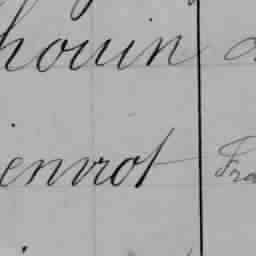 houin
envrot Fra